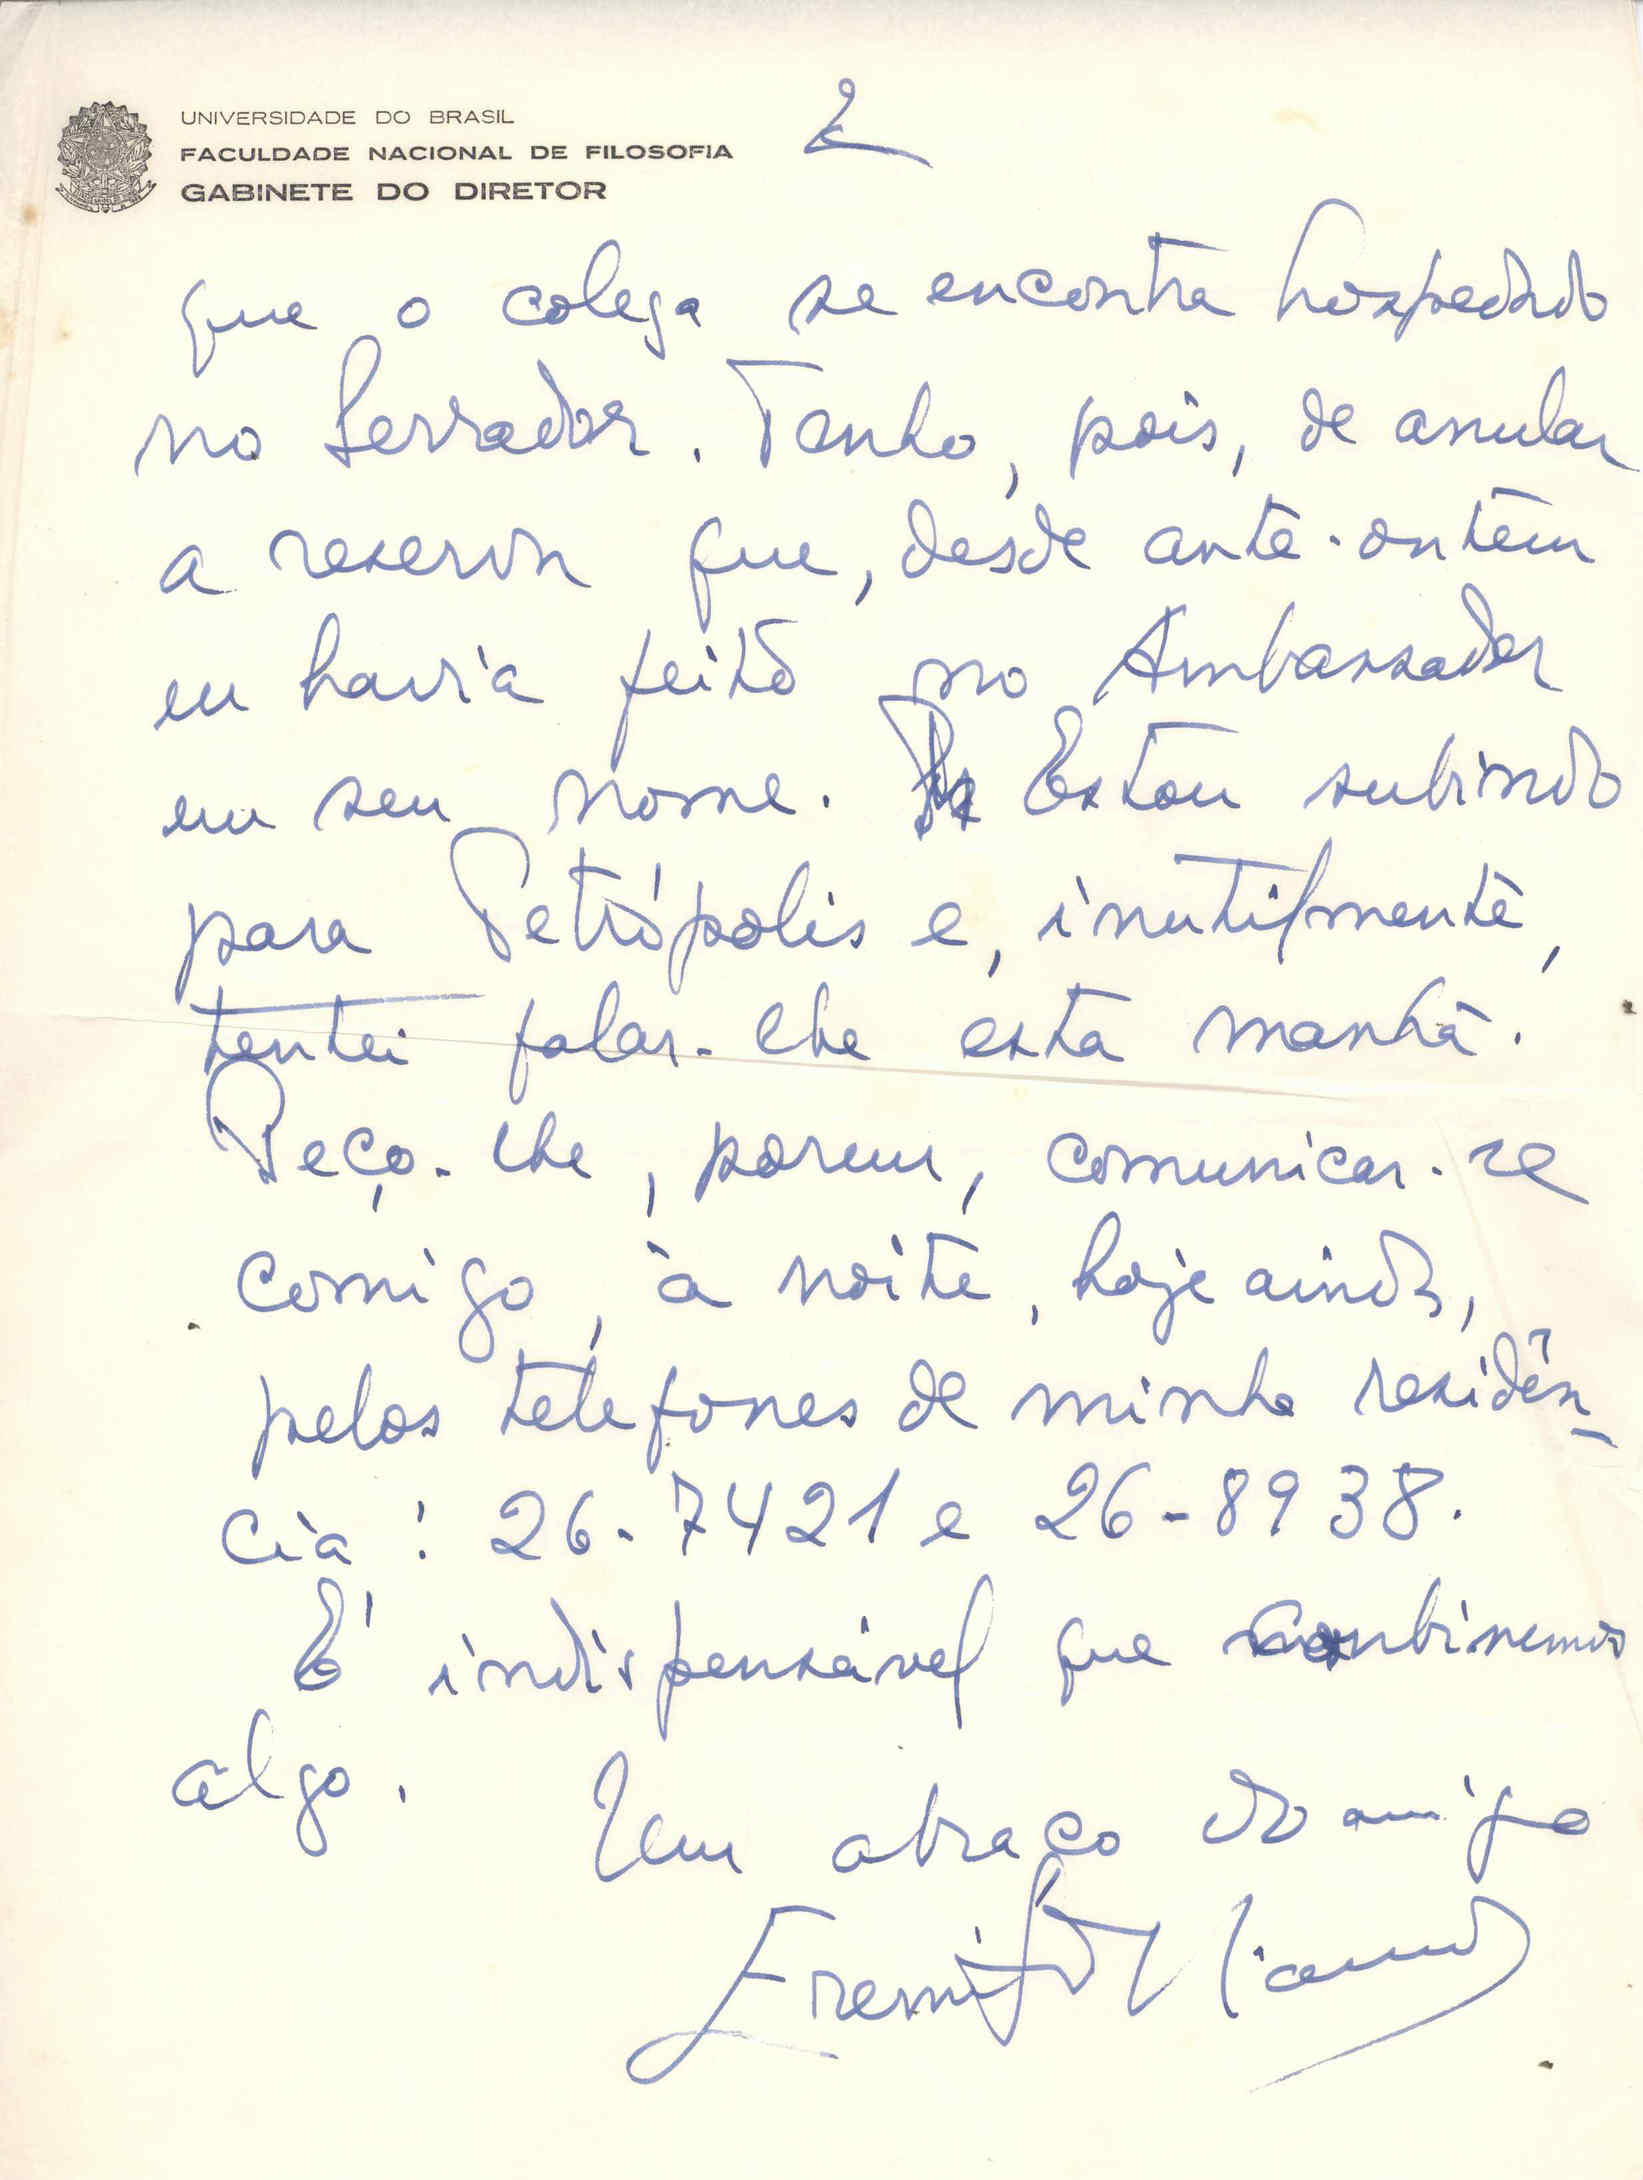 UNIVERSIDADE DO BRASIL
FACULDADE NACIONAL DE FILOSOFIA
GABINETE DO DIRETOR
2
que o colega se encontra hospedado
no Serrador. Tenho, pois, de anular
a reserva que, desde ante-ontem
eu havia feito no Ambassador
em seu nome. Estou subindo
para Petrópolis e, inutilmente,
tentei falar-lhe esta manhã.
Peço-lhe, porem, comunicar-se
comigo, à noite, hoje ainda,
pelos telefones de minha residên-
cia: 26-7421 e 26-8938.
É indispensável que combinemos
algo.
Um abraço do amigo
Eremildo Vianna